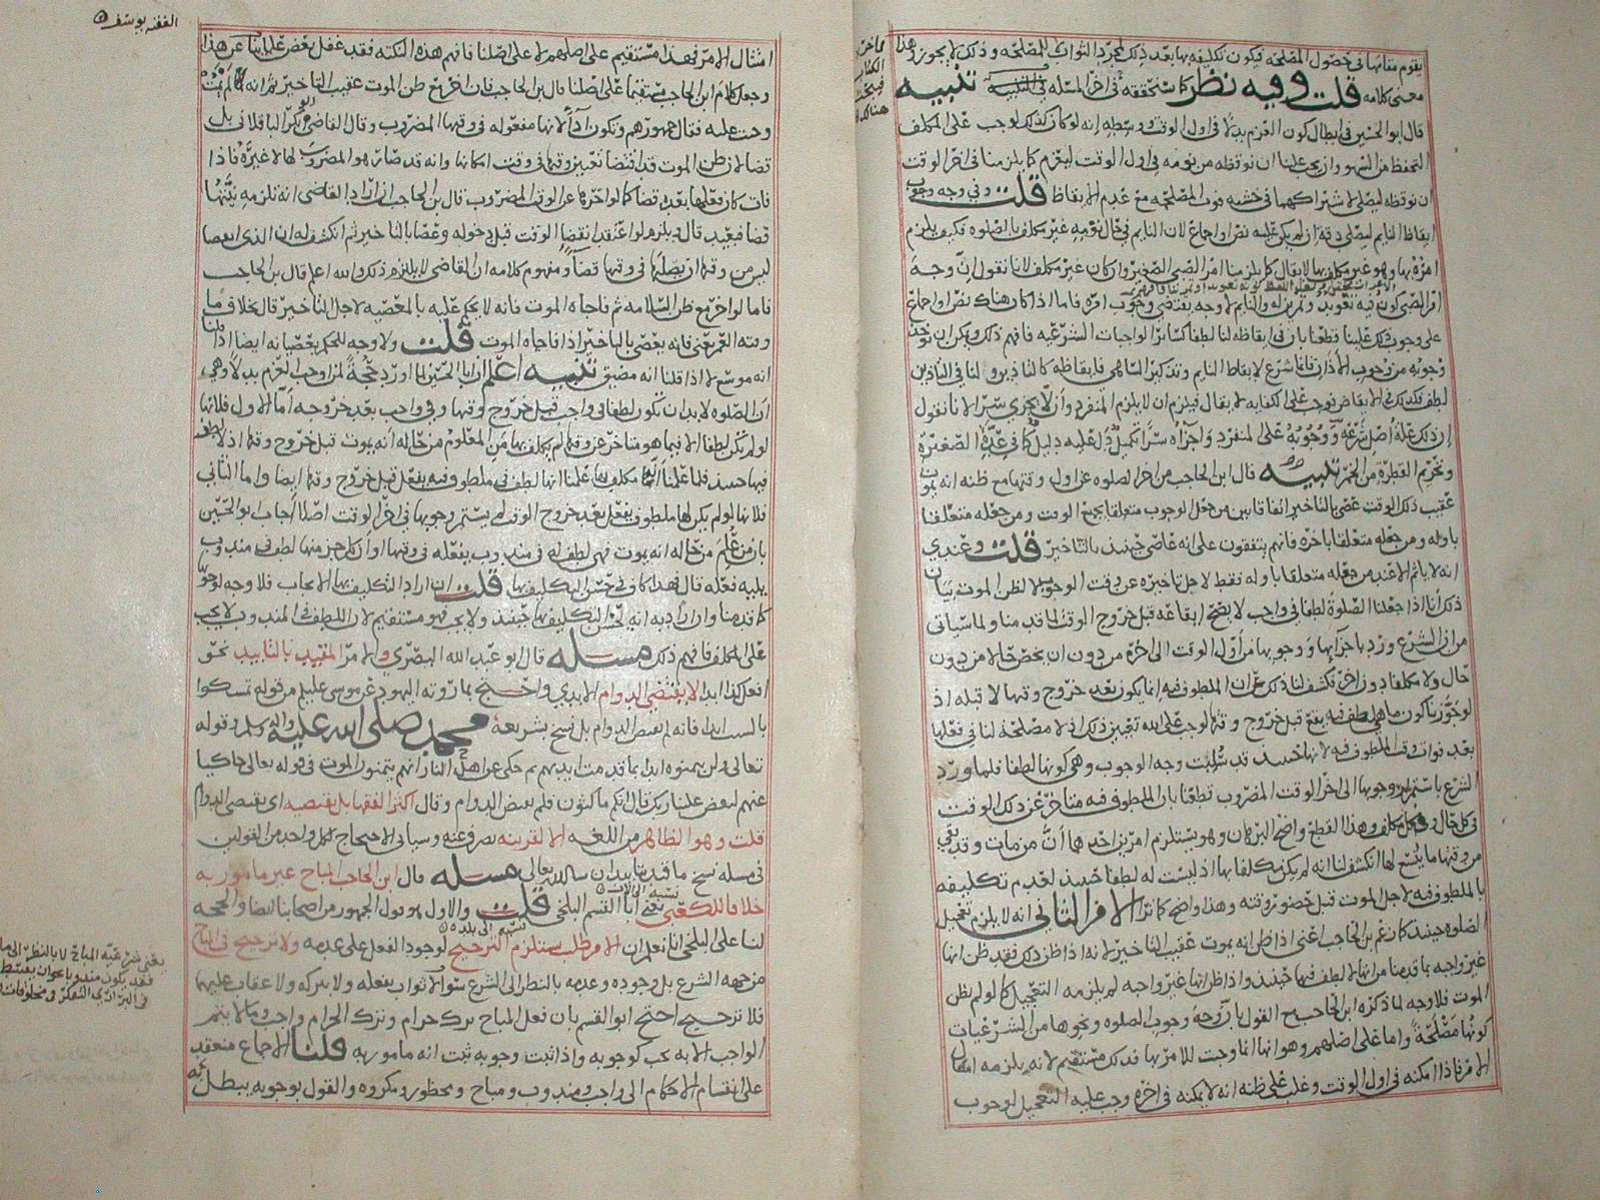 يقوم مقامها في حصول المصلحة فيكون تكليفه بها بعد ذلك لمجرد الثواب لا للمصلحة وذلك لا يجوز وهذا
معنى كلامه قلت وفيه نظر كما سنحققه في آخر المسئلة تنبيه
قال ابو الحسين في ابطال كون العزم بدلا في اول الوقت ووسطه انه لو كان كذلك لوجب على المكلف
التحفظ من السهو وان يجب علينا ان نوقظه من نومه في اول الوقت ليعزم كما يلزمنا في آخر الوقت
ان نوقظه ليصلي لاشتراكهما في خشية فوت المصلحة مع عدم الايقاظ قلت وفي وجه وجوب
ايقاظ النايم ليصلي دقة اذ لم يكن عليه نص ولا اجماع لان النايم في حال نومه غير مكلف بالصلوه فكيف يلزم
امره بها وهو غير مكلف بها لا يقال كما يلزمنا امر الصبي الصغير وان كان غير مكلف لانا نقول ان وجه
امر الصبي كون فيه تعويد وتمرين له والنايم لا وجه يقتضي وجوب امره فاما اذا كان هناك نص او اجماع
على وجوب ذلك علينا قطعنا بان في ايقاظه لنا لطفا كسائر الواجبات الشرعيه فافهم ذلك ويمكن ان يوخذ
وجوبه من وجوب الاذان فانما شرع لايقاظ النايم وتذكير الساهي فايقاظه كالتاذين ولنا في التاذين
لطف فكذلك في الايقاظ فوجب على الكفايه لا يقال فيلزم ان لا يلزم المنفرد وان لا يجزي سرا لانا نقول
ان ذلك علة اصل شرعه ووجوبه على المنفرد واجزاه سرا تكميل دل عليه دليل كما في عدة الصغيرة
وتحريم القطرة من الخمر تنبيه قال ابن الحاجب من اخر الصلوه عن اول وقتها مع ظنه انه يموت
عقيب ذلك الوقت عصى بالتاخير اتفاقا بين من جعل الوجوب متعلقا بجميع الوقت ومن جعله متعلقا
باوله ومن جعله متعلقا باخره فانهم يتفقون على انه عاص حينئذ بالتاخير قلت وعندي
انه لا ياثم الا عند من جعله متعلقا باوله فقط لاجل تاخيره عن وقت الوجوب لا لظن الموت بيان
ذلك انا اذا جعلنا الصلوة لطفا في واجب لا يصح ايقاعه قبل خروج الوقت لما قدمنا ولما سياتي
من ان الشرع ورد باجزايها ووجوبها من اول الوقت الى اخره من دون ان يخص حالا من دون
حال ولا مكلفا دون اخر فكشف لنا ذلك عن ان الملطوف فيه انما يكون بعد خروج وقتها لا قبله اذ
لو جوزنا كون ما هي لطف فيه يقع قبل خروج وقتها لوجب على الله تعيين ذلك اذ لا مصلحة لنا في فعلها
بعد فوات وقت الملطوف فيه لانها حينئذ قد سلبت وجه الوجوب وهي كونها لطفا فلما ورد
الشرع باستمرار وجوبها الى اخر الوقت المضروب قطعنا بان الملطوف فيه متاخر عن ذلك الوقت
في كل حال وكل مكلف وهذا القطع واضح البرهان وهو يستلزم امرين احدهما ان من مات وقد بقي
من وقتها ما يتسع لها انكشف لنا انه لم يكن مكلفا بها اذ ليست له لطفا حينئذ لعدم تكليفه
بالملطوف فيه لاجل الموت قبل حضور وقته وهذا واضح كما ترا الامر الثاني انه لا يلزم تعجيل
الصلوه حينئذ كما زعم بن الحاجب اعني اذا ظن انه يموت عقيب التاخير لانه اذا ظن ذلك فقد ظن انها
غير واجبه بما قدمنا من انها لا لطف فيها حينئذ واذا ظن انها غير واجبه لم يلزمه التعجيل كما لو لم يظن
الموت فلا وجه لما ذكره ابن الحاجب مع القول بان وجه وجوب الصلوه ونحوها من الشرعيات
كونها مصلحة واما على اصلهم وهو انها انما وجبت للامر بها فذلك مستقيم لانه يلزمه امتثال
الامر فاذا امكنه في اول الوقت وغلب على ظنه انه لا يمكنه في اخره وجب عليه التعجيل لوجوب
الفقه يوسف
امتثال الامر فهذا مستقيم على اصلهم لا على اصلنا فافهم هذه النكته فقد غفل بعض علمائنا عن هذا
وجعل كلام ابن الحاجب مستقيما على اصلنا قال بن الحاجب فان اخر مع ظن الموت عقيب التاخير ثم انه لم يمت
وجبت عليه فقال جمهورهم وتكون اداء لانها مفعوله في وقتها المضروب وقال القاضي ابو بكر الباقلاني بل
قضا لان ظن الموت قد اقتضا تعيين وقتها في وقت امكانها وانه قد صار هو المضروب لها لا غيره فاذا
فات كان فعلها بعده قضا كما لو اخرها عن الوقت المضروب قال بن الحاجب ان اراد القاضي انه تلزمه نيتها
قضا فبعيد قال ويلزم لو اعتقد انقضا الوقت قبل دخوله وعصا بالتاخير ثم انكشف له ان الذي
ليس من وقتها ان يصليها في وقتها قضاء ومفهوم كلامه ان القاضي لا يلتزم ذلك والله اعلم قال بن الحاجب
فاما لو اخر مع ظن السلامه ثم فاجاه الموت فانه لا يحكم عليه بالمعصيه لاجل التاخير قال بخلاف ما
وقته العمر يعني فانه يعصي بالتاخير اذا فاجاه الموت قلت ولا وجه للحكم بعصيانه ايضا اذا قلنا
انه موسع لا اذا قلنا انه مضيق تنبيه اعلم ان ابا الحسين لما اورد حجة لمن اوجب العزم بدلا وهي
ان الصلوه لا بد ان تكون لطفا في واجب قبل خروج وقتها وفي واجب بعد خروجه اما الاول فلانها
لو لم تكن لطفا الا فيما هو متاخر عن وقتها لم يكلف بها من المعلوم من حاله انه يموت قبل خروج وقتها اذ لا لطف
فيها حينئذ فلما علمنا انه مكلف بها علمنا انها لطف في ملطوف فيه يفعل قبل خروج وقتها ايضا واما الثاني
فلانها لو لم يكن لها ملطوف يفعل بعد خروج الوقت لم يستمر وجوبها في اخر الوقت اصلا اجاب ابو الحسين
بان من علم من حاله انه يموت فهي لطف له في مندوب يفعله في وقتها او ان كل جزء منها لطف في مندوب
يليه فعله قال فهذا كاف في حسن التكليف بها قلت ان اراد التكليف بها الايجاب فلا وجه لوجوبها
كما قدمنا وان اراد به انه يحسن التكليف بها حينئذ ولا يجب فهو مستقيم لان اللطف في المندوب لا يجب
على المكلف فافهم ذلك مسئله قال ابو عبد الله البصري والامر المقيد بالتابيد نحو
افعل كذا ابدا لا يقتضي الدوام الابدي واحتج بما روته اليهود عن موسى عليلم من قوله تمسكوا
بالسبت ابدا فانه لم يقتض الدوام بل نسخ بشريعة محمد صلى الله عليه واله وسلم وقوله
تعالى ولن يتمنوه ابدا بما قدمت ايديهم ثم حكى عن اهل النار انهم يتمنون الموت في قوله تعالى حاكيا
عنهم ليقض علينا ربك قال انكم ماكثون فلم يقتض الدوام وقال اكثر الفقها بل يقتضيه اي يقتضي الدوام
قلت وهو الظاهر من اللغه الا لقرينه تصرف عنه وسياتي الاحتجاج لكل واحد من القولين
في مسئلة نسخ ما قيد بتابيد ان شاء الله تعالى مسئله قال ابن الحاجب المباح غير مامور به
خلافا للكعبي يعني ابا القسم البلخي قلت والاول هو قول الجمهور من اصحابنا ايضا والحجه
لنا على البلخي انا نعلم ان الامر طلب يستلزم الترجيح لوجود الفعل على عدمه ولا ترجيح في المباح
من جهة الشرع بل وجوده وعدمه بالنظر الى الشرع سوا لا ثواب بفعله ولا بتركه ولا عقاب عليهما
فلا ترجيح احتج ابو القسم بان فعل المباح ترك حرام وترك الحرام واجب وما لا يتم
الواجب الا به يجب كوجوبه واذا ثبت وجوبه ثبت انه مامور به قلنا الاجماع منعقد
على انقسام الاحكام الى واجب ومندوب ومباح ومحظور ومكروه والقول بوجوبه يبطل